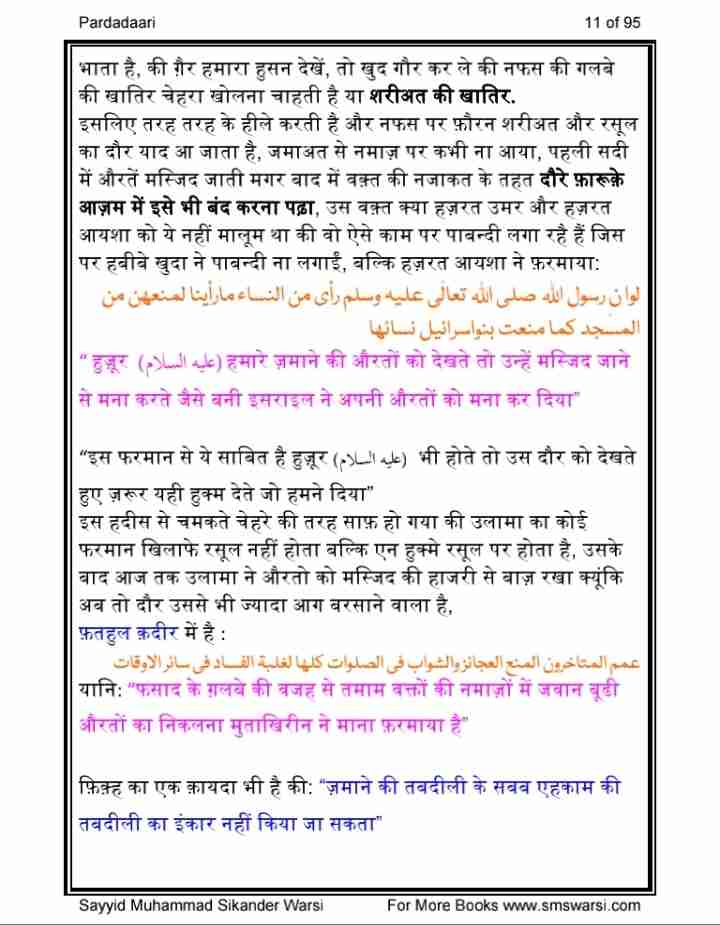 Pardadaari 11 of 95
भाता है, की ग़ैर हमारा हुसन देखें, तो खुद गौर कर ले की नफस की गलबे
की खातिर चेहरा खोलना चाहती है या शरीअत की खातिर.
इसलिए तरह तरह के हीले करती है और नफस पर फ़ौरन शरीअत और रसूल
का दौर याद आ जाता है, जमाअत से नमाज़ पर कभी ना आया, पहली सदी
में औरतें मस्जिद जाती मगर बाद में वक़्त की नजाकत के तहत दौरे फ़ारूक़े
आज़म में इसे भी बंद करना पढ़ा, उस वक़्त क्या हज़रत उमर और हज़रत
आयशा को ये नहीं मालूम था की वो ऐसे काम पर पाबन्दी लगा रहै हैं जिस
पर हबीबे खुदा ने पाबन्दी ना लगाईं, बल्कि हज़रत आयशा ने फ़रमाया:
لوان رسول الله صلى الله تعالى عليه وسلم رأى من النساء مارأينا لمنعهن من
المسجد كما منعت بنواسرائيل نسائها
“ हुज़ूर (عليه السلام) हमारे ज़माने की औरतों को देखते तो उन्हें मस्जिद जाने
से मना करते जैसे बनी इसराइल ने अपनी औरतों को मना कर दिया”
“इस फरमान से ये साबित है हुज़ूर (عليه السلام) भी होते तो उस दौर को देखते
हुए ज़रूर यही हुक्म देते जो हमने दिया”
इस हदीस से चमकते चेहरे की तरह साफ़ हो गया की उलामा का कोई
फरमान खिलाफे रसूल नहीं होता बल्कि एन हुक्मे रसूल पर होता है, उसके
बाद आज तक उलामा ने औरतो को मस्जिद की हाजरी से बाज़ रखा क्यूंकि
अब तो दौर उससे भी ज्यादा आग बरसाने वाला है,
फ़तहुल क़दीर में है :
عمم المتاخرون المنع العجائز والشواب فى الصلوات كلها لغلبة الفساد فى سائر الاوقات
यानि: “फसाद के ग़लबे की वजह से तमाम वक्तों की नमाज़ों में जवान बूढी
औरतों का निकलना मुताखिरीन ने माना फ़रमाया है”
फ़िक़्ह का एक क़ायदा भी है की: “ज़माने की तबदीली के सबब एहकाम की
तबदीली का इंकार नहीं किया जा सकता”
Sayyid Muhammad Sikander Warsi For More Books www.smswarsi.com